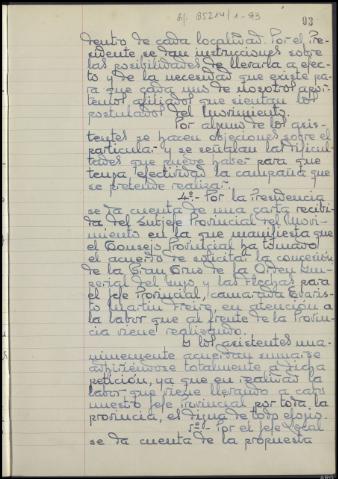 Sig. 85214/1-93
93
dentro de cada localidad. Por el Pre-
sidente se dan instrucciones sobre
las posibilidades de llevarla a efec-
to y de la necesidad que existe pa-
ra que cada uno de nosotros apor-
temos afiliados que sientan los
postulados del Movimiento.
Por alguno de los asis-
tentes se hacen objeciones sobre el
particular y se señalan las dificul-
tades que puede haber para que
tenga efectividad la campaña que
se pretende realizar.
4º.- Por la Presidencia
se da cuenta de una carta recibi-
da del Subjefe Provincial del Movi-
miento en la que manifiesta que
el Consejo Provincial ha tomado
el acuerdo de solicitar la concesión
de la Gran Cruz de la Orden Im-
perial del Yugo y las Flechas para
el Jefe Provincial, camarada Evaris-
to Martín Freire, en atención a
la labor que al frente de la Provin-
cia viene realizando.
Los asistentes una-
nimemente acuerdan sumarse
adhiriéndose totalmente a dicha
petición, ya que en realidad la
labor que viene llevando a cabo
nuestro Jefe Provincial por toda la
provincia, es digna de todo elogio.
5º.- Por el Jefe Local
se da cuenta de la propuesta